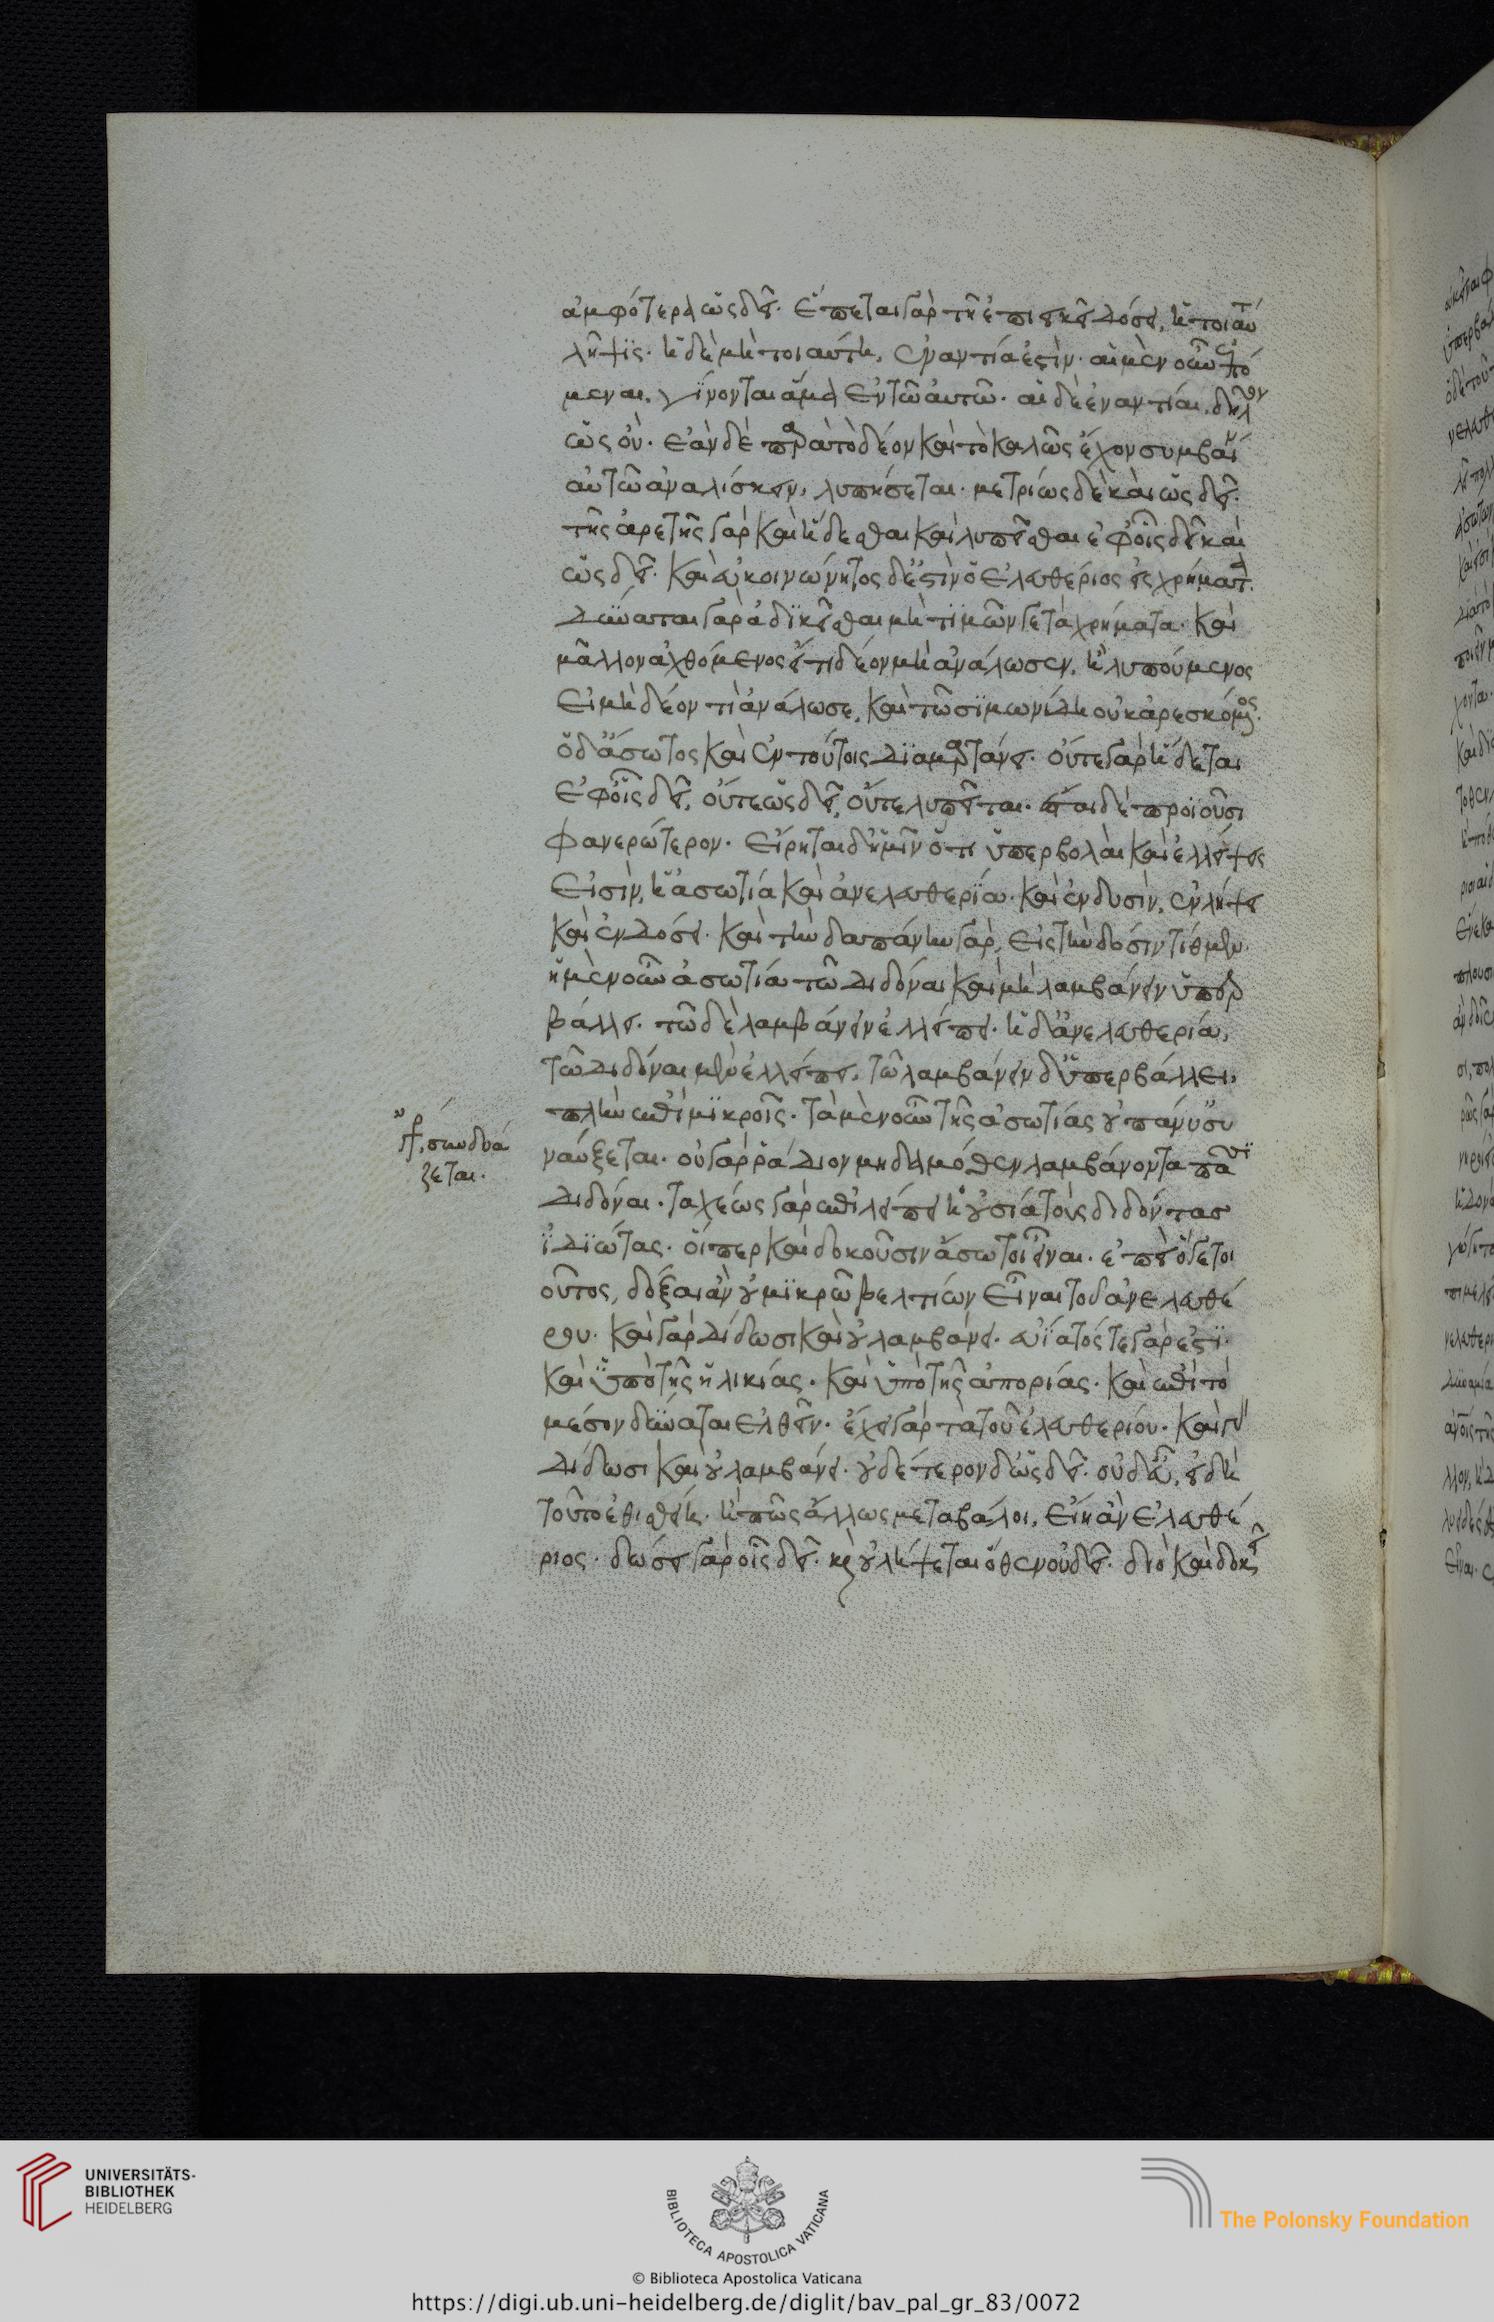 ἀμφότερα ὡς δεῖ. ἕπεται γὰρ τῇ ἐπιεικεῖ δόσει, ἡ τοιαύτη
λῆψις. ἡ δὲ μὴ τοιαύτη, ἐναντία ἐστίν. αἱ μὲν οὖν ἑπό
μεναι, γίνονται ἅμα ἐν τῶ αὐτῶ. αἱ δὲ ἐναντίαι, δῆλον
ὡς οὐ. ἐὰν δὲ παρὰ τὸ δέον καὶ τὸ καλῶς ἔχον συμβαίνη
αὐτῶ ἀναλίσκειν, λυπήσεται. μετρίως δὲ καὶ ὡς δεῖ.
τῆς ἀρετῆς γὰρ καὶ ἥδεσθαι καὶ λυπεῖσθαι ἐφ' οἷς δεῖ καὶ
ὡς δεῖ. καὶ εὐκοινώνητος δ' ἐστὶν ὁ ἐλευθέριος εἰς χρήματα.
δύναται γὰρ ἀδικεῖσθαι μὴ τιμῶν γε τὰ χρήματα. καὶ
μᾶλλον ἀχθόμενος εἴ τι δέον μὴ ἀνάλωσεν, ἢ λυπούμενος
εἰ μὴ δέον τι ἀνάλωσε, καὶ τῶ σιμωνίδη οὐκ ἀρεσκόμενος.
ὁ δ' ἄσωτος καὶ ἐν τούτοις διαμαρτάνει. οὔτε γὰρ ἥδεται
ἐφ' οἷς δεῖ, οὔτε ὡς δεῖ, οὔτε λυπεῖται. ἔσται δὲ προϊοῦσι
φανερώτερον. εἴρηται δ' ἡμῖν ὅτι ὑπερβολαὶ καὶ ἐλλείψεις
εἰσὶν, ἡ ἀσωτία καὶ ἀνελευθερία. καὶ ἐν δυσὶν, ἐν λήψει
καὶ ἐν δόσει. καὶ τὴν δαπάνην γὰρ, εἰς τὴν δόσιν τίθεμεν.
ἡ μὲν οὖν ἀσωτία τῶ διδόναι καὶ μὴ λαμβάνειν ὑπερ
βάλλει. τῶ δὲ λαμβάνειν ἐλλείπει. ἡ δ' ἀνελευθερία,
τῶ διδόναι μὲν ἐλλείπει, τῶ λαμβάνειν δ' ὑπερβάλλει,
πλὴν ἐπὶ μικροῖς. τὰ μὲν οὖν τῆς ἀσωτίας οὐ πάνυ συ
ναύξεται. οὐ γὰρ ῥάδιον μηδαμόθεν λαμβάνοντα πᾶσι
διδόναι. ταχέως γὰρ ἐπιλείπει ἡ οὐσία τοὺς διδόντας
ἰδιώτας. οἵπερ καὶ δοκοῦσιν ἄσωτοι εἶναι. ἐπεὶ ὅ γε τοι
οὗτος, δόξαι ἂν οὐ μικρῶ βελτίων εἶναι τοῦ ἀνελευθέ
ρου. καὶ γὰρ δίδωσι καὶ οὐ λαμβάνει. εὐίατός τε γάρ ἐστι.
καὶ ὑπὸ τῆς ἡλικίας. καὶ ὑπὸ τῆς ἀπορίας. καὶ ἐπὶ τὸ
μέσον δύναται ἐλθεῖν. ἔχει γὰρ τὰ τοῦ ἐλευθερίου. καὶ γὰρ
δίδωσι καὶ οὐ λαμβάνει. οὐδέτερον δ' ὡς δεῖ. οὐδ' εὖ, εἰ δὴ
τοῦτο ἐθισθείη. ἤ πως ἄλλως μεταβάλοι, εἴη ἂν ἐλευθέ
ριος. δώσει γὰρ οἷς δεῖ. καὶ οὐ λήψεται ὅθεν οὐ δεῖ. διὸ καὶ δοκεῖ
γρ. συνδυά
ζεται.
UNIVERSITÄTS-
BIBLIOTHEK
HEIDELBERG
BIBLIOTECA APOSTOLICA VATICANA
© Biblioteca Apostolica Vaticana
The Polonsky Foundation
https://digi.ub.uni-heidelberg.de/diglit/bav_pal_gr_83/0072